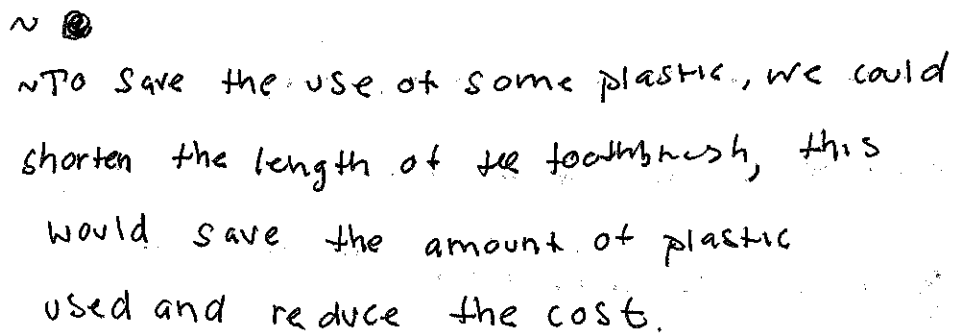 ~
~To save the use of some plastic, we could
shorten the length of the toothbrush, this
would save the amount of plastic
used and reduce the cost.